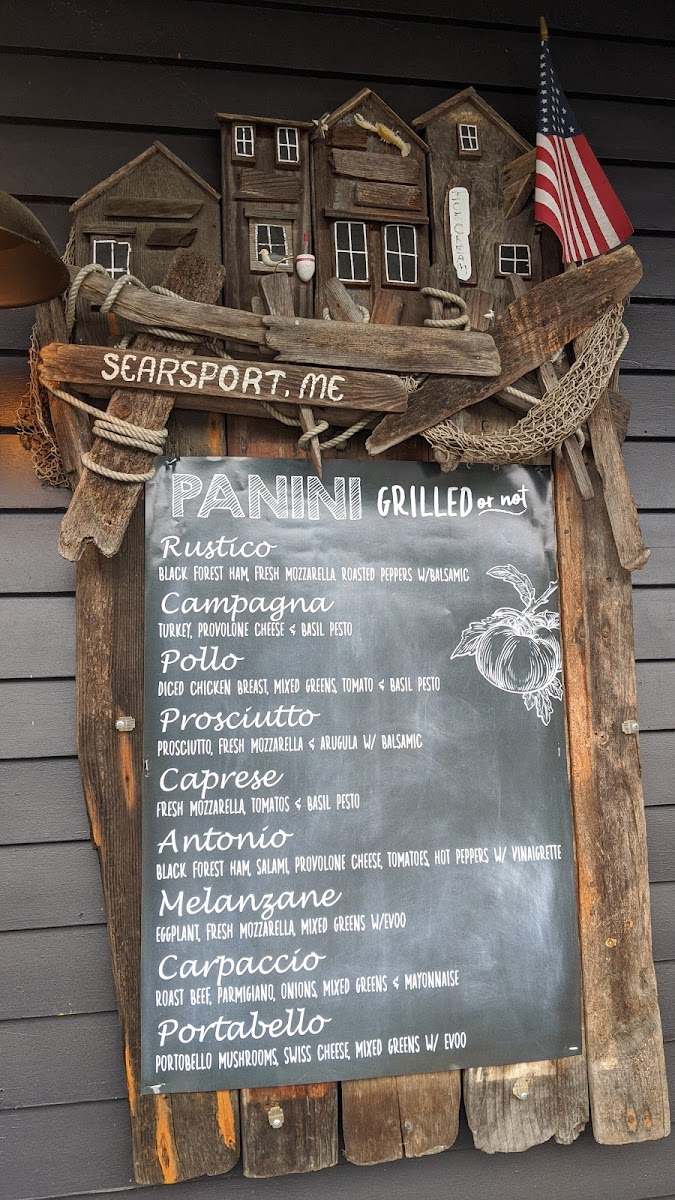 ICE CREAM
SEARSPORT, ME
PANINI GRILLED or not
Rustico
BLACK FOREST HAM, FRESH MOZZARELLA ROASTED PEPPERS W/BALSAMIC
Campagna
TURKEY, PROVOLONE CHEESE & BASIL PESTO
Pollo
DICED CHICKEN BREAST, MIXED GREENS, TOMATO & BASIL PESTO
Prosciutto
PROSCIUTTO, FRESH MOZZARELLA & ARUGULA W/ BALSAMIC
Caprese
FRESH MOZZARELLA, TOMATOS & BASIL PESTO
Antonio
BLACK FOREST HAM, SALAMI, PROVOLONE CHEESE, TOMATOES, HOT PEPPERS W/ VINAIGRETTE
Melanzane
EGGPLANT, FRESH MOZZARELLA, MIXED GREENS W/EVOO
Carpaccio
ROAST BEEF, PARMIGIANO, ONIONS, MIXED GREENS & MAYONNAISE
Portabello
PORTOBELLO MUSHROOMS, SWISS CHEESE, MIXED GREENS W/ EVOO